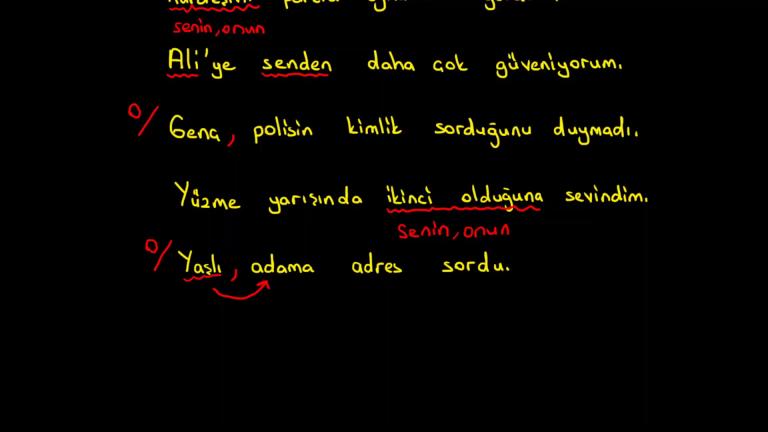 senin, onun
Ali'ye senden daha çok güveniyorum.
0/ Genç, polisin kimlik sorduğunu duymadı.
Yüzme yarışında ikinci olduğuna sevindim.
senin, onun
0/ Yaşlı, adama adres sordu.